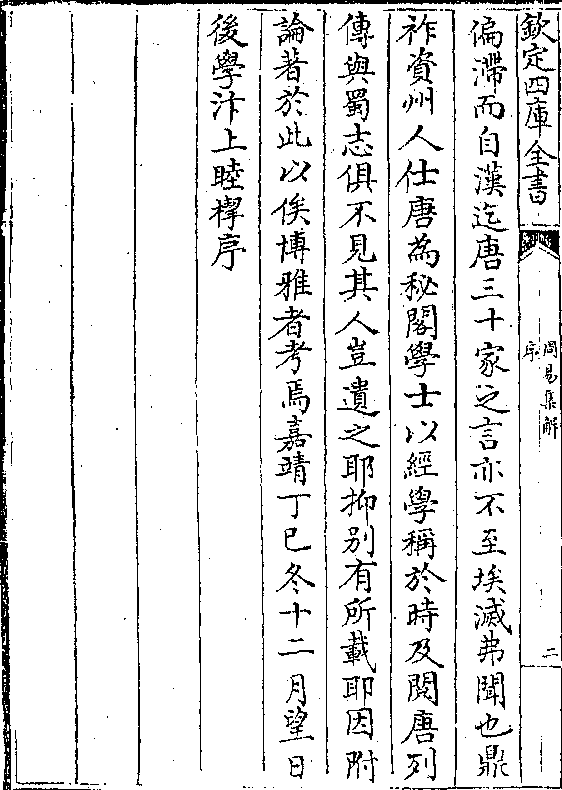 欽定四庫全書
周易集解
序
二
偏滯而自漢迄唐三十家之言亦不至埃滅弗聞也鼎
祚資州人仕唐為秘閣學士以經學稱於時及閱唐列
傳與蜀志俱不見其人豈遺之耶抑别有所載耶因附
論著於此以俟博雅者考焉嘉靖丁巳冬十二月望日
後學汴上睦㮮序